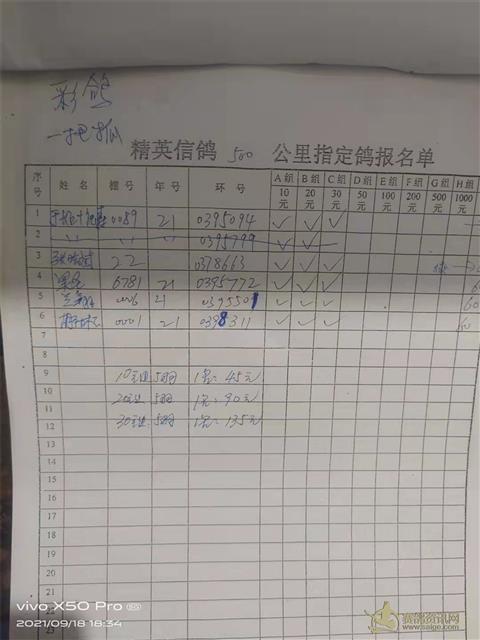 彩鸽
一把抓
精英信鸽 500 公里指定鸽报名单
序号 姓名 棚号 年号 环号 A组10元 B组20元 C组30元 D组50元 E组100元 F组200元 G组500元 H组1000元
1 0089 21 0395094 ✓ ✓ ✓
2 0395799 ✓ ✓
3 22 0378663 ✓ ✓ ✓
4 6781 21 0395772 ✓ ✓ ✓
5 0006 21 0395501 ✓ ✓ ✓
6 0001 21 0398311 ✓ ✓ ✓
7
8
9 10元组 5羽 1名: 45元
10 20元组 5羽 1名: 90元
11 30元组 5羽 1名: 135元
12
13
14
15
16
17
18
19
20
21
22
23
vivo X50 Pro
2021/09/18 18:34
赛鸽资讯网
www.saige.com